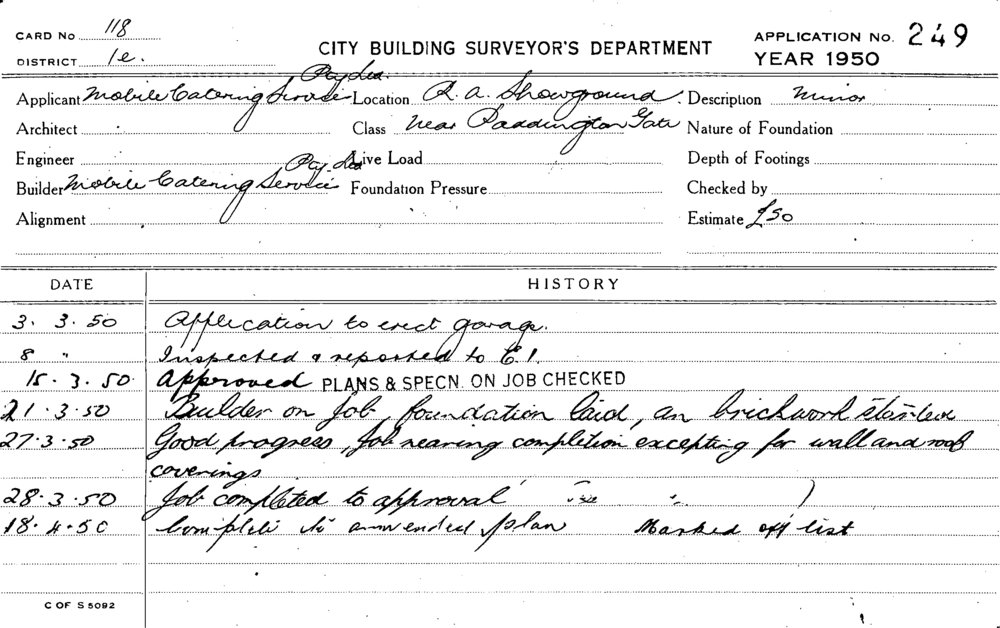 CARD No 118
DISTRICT 1e.
CITY BUILDING SURVEYOR'S DEPARTMENT
APPLICATION No. 249
YEAR 1950
Applicant Mobile Catering Service Pty Ltd. Location R.A. Showground. Description Minor
Architect Class near Paddington Gate Nature of Foundation
Engineer Live Load Depth of Footings
Builder Mobile Catering Service Pty Ltd Foundation Pressure Checked by
Alignment Estimate £50
DATE HISTORY
3. 3. 50 Application to erect garage.
8 " Inspected & reported to C.I.
15. 3. 50. Approved PLANS & SPECN. ON JOB CHECKED
21. 3. 50 Builder on job, foundation laid, an brickwork started
27. 3. 50 Good progress, job nearing completion excepting for wall and roof
coverings
28. 3. 50 Job completed to approval
18. 4. 50 Complete to ammended plan Marked off list
C OF S 5092